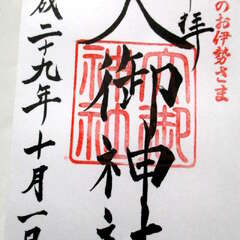 のお伊勢さま
拝
大御神社
大御
神社
成二十九年十月一日